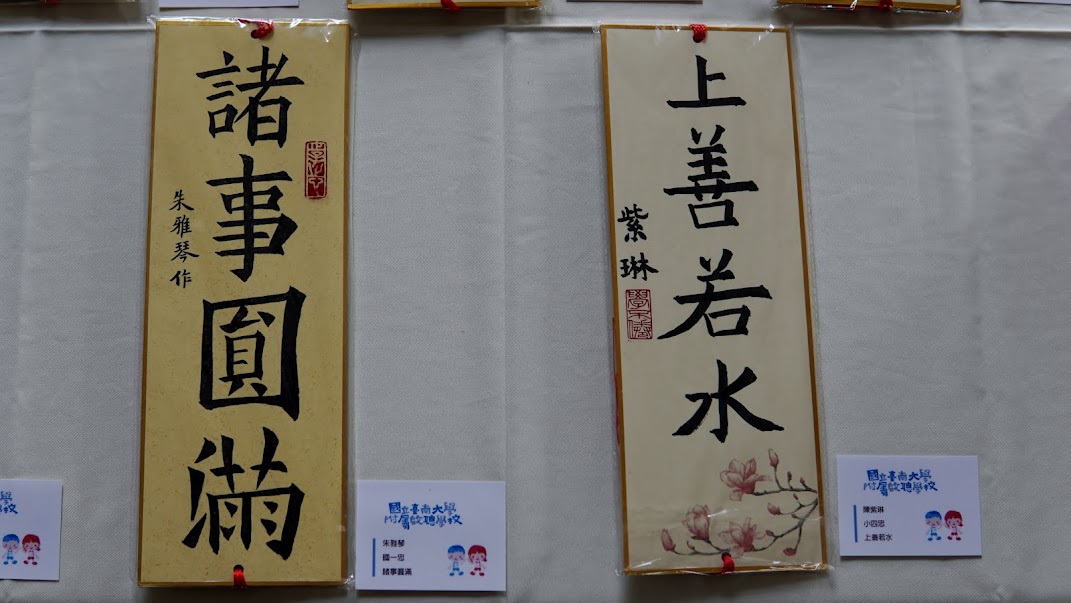 諸事圓滿
朱雅琴作
國立臺南大學
附屬啟聰學校
朱雅琴
國一忠
諸事圓滿
上善若水
紫琳
國立臺南大學
附屬啟聰學校
陳紫琳
小四忠
上善若水